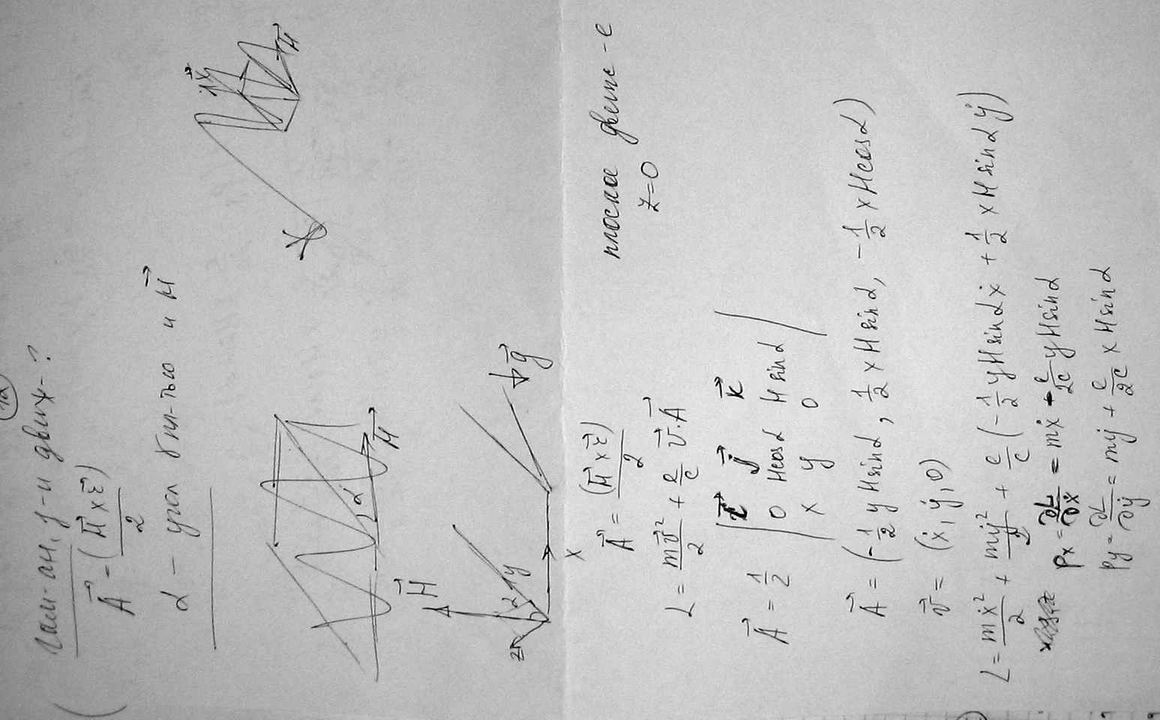 гам-ан, ур-и движ-?
\vec{A} = \frac{(\vec{H} × \vec{r})}{2}
α – угол пл-тью и \vec{H}
\vec{H}
α
\vec{H}
α
y
z
x
\vec{g}
\vec{A} = \frac{(\vec{H} × \vec{r})}{2}
плоское движе-е
z=0
L = \frac{m\vec{v}^2}{2} + \frac{e}{c} \vec{v}·\vec{A}
\vec{A} = \frac{1}{2} | \vec{i} \vec{j} \vec{k}
0 Hcosα Hsinα
x y 0 |
\vec{A} = (-\frac{1}{2} y H sinα, \frac{1}{2} x H sinα, -\frac{1}{2} x H cosα)
\vec{v} = (ẋ, ẏ, 0)
L = \frac{mẋ^2}{2} + \frac{mẏ^2}{2} + \frac{e}{c} (-\frac{1}{2} y H sinα ẋ + \frac{1}{2} x H sinα ẏ)
p_x = \frac{∂L}{∂ẋ} = mẋ - \frac{e}{2c} y H sinα
p_y = \frac{∂L}{∂ẏ} = mẏ + \frac{e}{2c} x H sinα